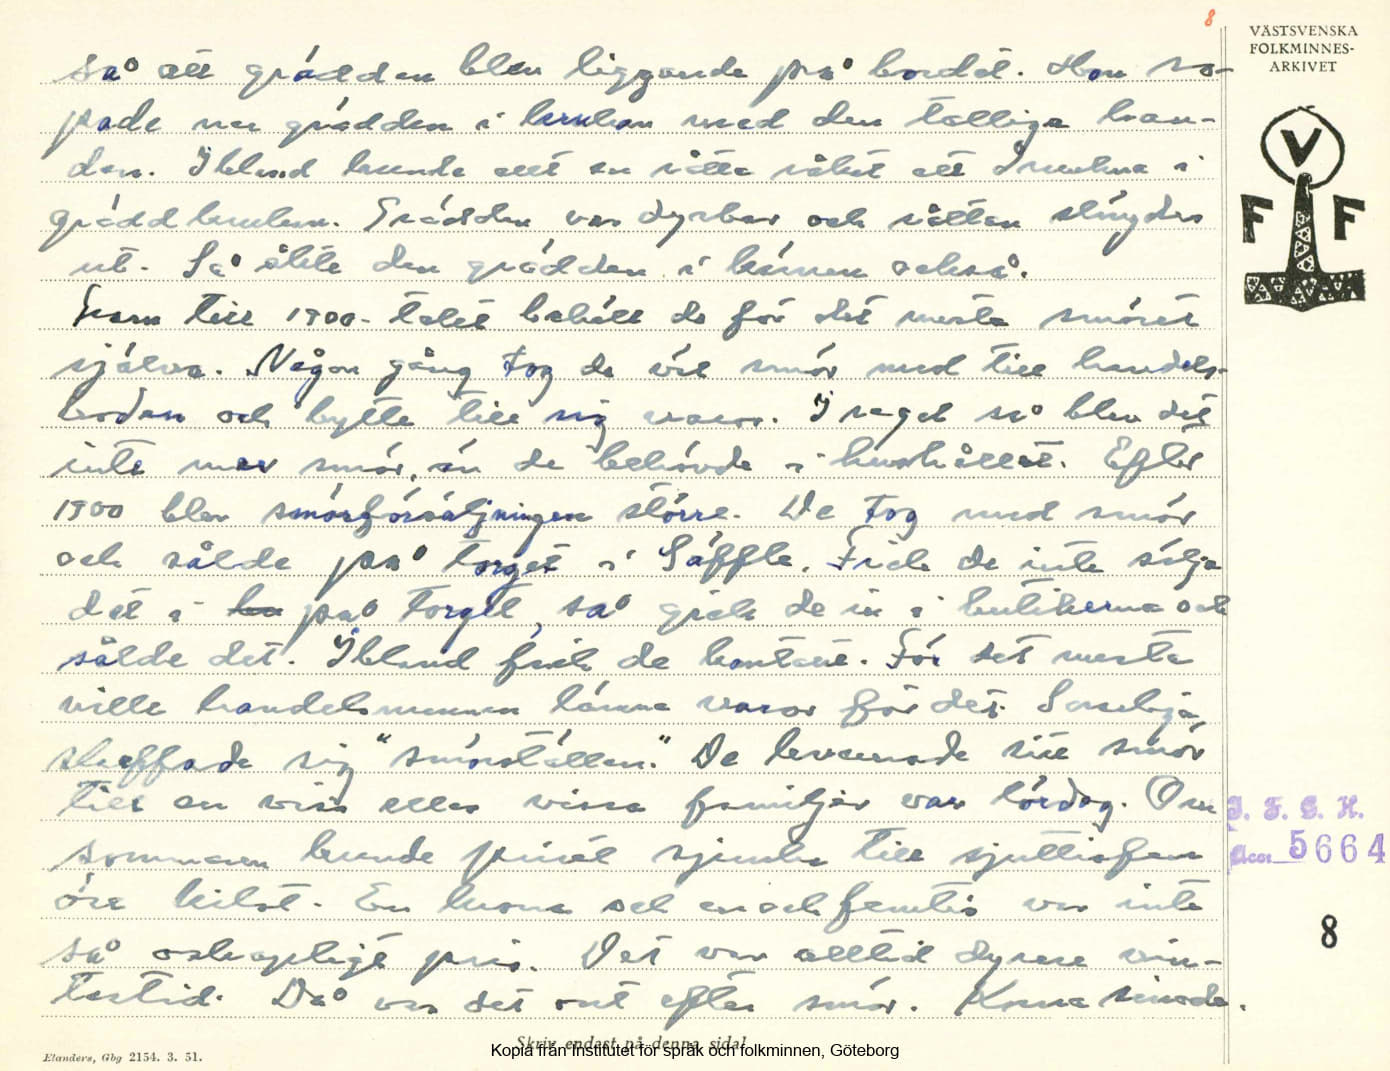 8
VÄSTSVENSKA
FOLKMINNES-
ARKIVET
V
F F
så att grädden blev liggande på bordet. Hon so-
pade ner grädden i krukan med den tålliga han-
den. Ibland hunde allt en råtta råkat att drunkna i
gräddkrukan. Grädden var dyrbar och råttan slängdes
ut. Så åkte den grädden i kärnan också.
Fram till 1900-talet behöll de för det mesta smöret
själva. Någon gång tog de väl smör med till handels-
boden och bytte till sig varor. I regel så blev det
inte mer smör, än de behövde i hushållet. Efter
1900 blev smörförsäljningen större. De tog med smör
och sålde på torget i Säffle. Fick de inte sälja
det i på torget, så gick de in i butikerna och
sålde det. Ibland fick de kontant. För det mesta
ville handelsmannen lämna varor för det. Somliga
skaffade sig "smörställen." De levererade sitt smör
till en viss eller vissa familjer var lördag. Om
sommaren kunde priset sjunka till sjuttiofem
öre kilot. En krona och en och femtio var inte
så oskapligt pris. Det var alltid dyrare vin-
tertid. Då var det ont efter smör. Korna sinade.
I. F. G. H.
Acc. 5664
8
Elanders, Gbg 2154. 3. 51.
Skriv endast på denna sida!
Kopia från Institutet för språk och folkminnen, Göteborg